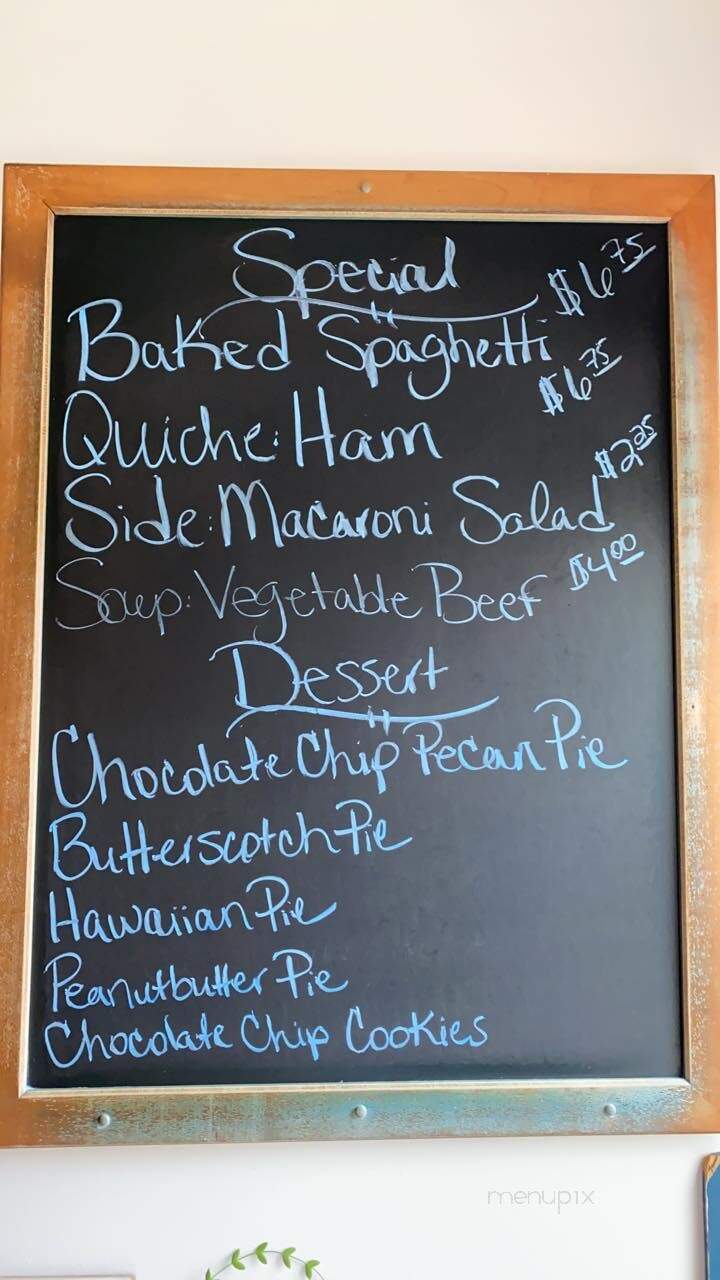 Special
Baked Spaghetti $6.75
Quiche: Ham $6.75
Side: Macaroni Salad $2.25
Soup: Vegetable Beef $4.00
Dessert
Chocolate Chip Pecan Pie
Butterscotch Pie
Hawaiian Pie
Peanutbutter Pie
Chocolate Chip Cookies
menupix